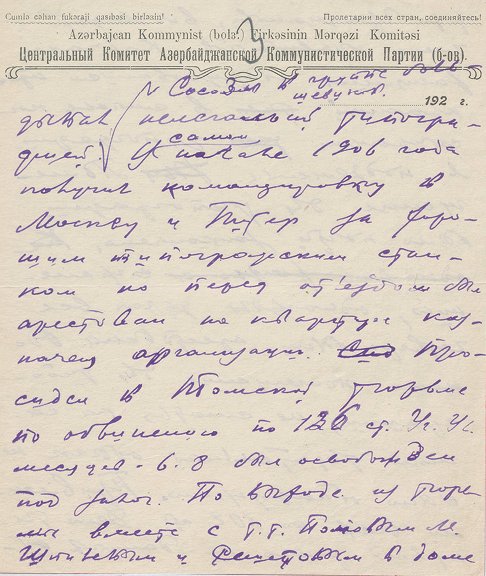 Cumlə cəhan fukəraji qasıbəsi birləşin! Пролетарии всех стран, соединяйтесь!
Azərbajcan Kommynist (bolş.) Firkəsinin Mərqəzi Komitəsi
Центральный Комитет Азербайджанской Коммунистической Партии (б-ов).
3
в группе большевиков.
192 г.
нелегальной типографией.
самом
В начале 1906 года
получил командировку в
Москву и Питер за хорошим типографским станком но перед от'ездом был
арестован на квартире казначея организации. Просидел в Томской тюрьме
по обвинению по 126 ст. Уг. Ул.
месяцев - 6. 8 был освобожден
под залог. По выходе из тюрьмы вместе с т.т. Поповым
и Решетовым в доме